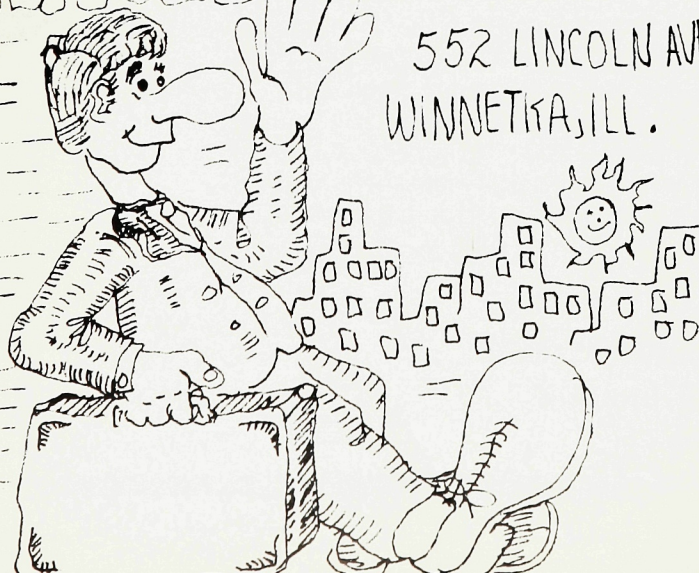 552 LINCOLN AV
WINNETKA, ILL.